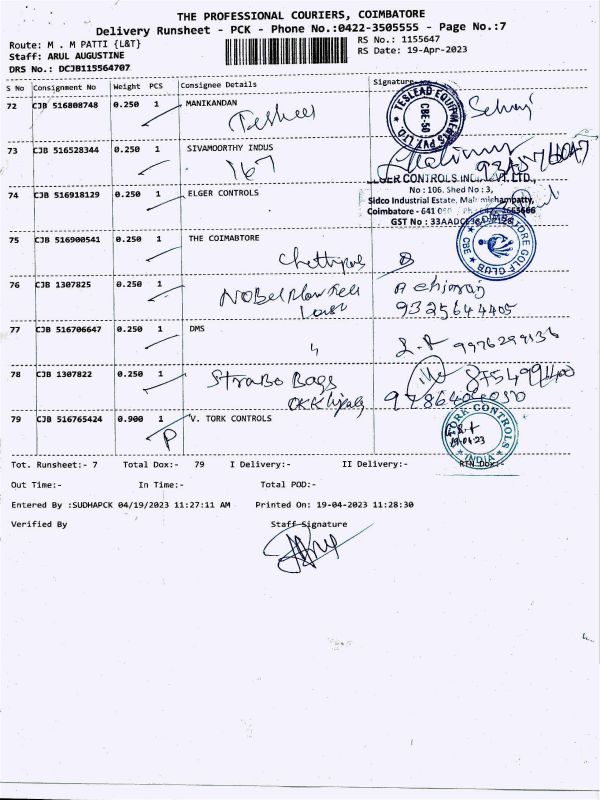 THE PROFESSIONAL COURIERS, COIMBATORE
Delivery Runsheet - PCK - Phone No.:0422-3505555 - Page No.:7
Route: M . M PATTI {L&T}
RS No.: 1155647
Staff: ARUL AUGUSTINE
RS Date: 19-Apr-2023
DRS No.: DCJB115564707
S No Consignment No Weight PCS Consignee Details Signature
72 CJB 516808748 0.250 1 MANIKANDAN
TESLEAD EQUIPMENTS PVT. LTD.
CBE-50
73 CJB 516528344 0.250 1 SIVAMOORTHY INDUS
167
74 CJB 516918129 0.250 1 ELGER CONTROLS
No : 106, Shed No : 3,
Sidco Industrial Estate,
Coimbatore - 641 050
GST No :
75 CJB 516900541 0.250 1 THE COIMABTORE
COIMBATORE GOLF CLUB
CBE
76 CJB 1307825 0.250 1
9325644405
77 CJB 516706647 0.250 1 DMS
9976299136
78 CJB 1307822 0.250 1 STRABO Bags
79 CJB 516765424 0.900 1 V. TORK CONTROLS
P
TORK-CONTROLS
INDIA
19.04.23
Tot. Runsheet:- 7 Total Dox:- 79 I Delivery:- II Delivery:- RTN Dox:-
Out Time:- In Time:- Total POD:-
Entered By :SUDHAPCK 04/19/2023 11:27:11 AM Printed On: 19-04-2023 11:28:30
Verified By Staff Signature